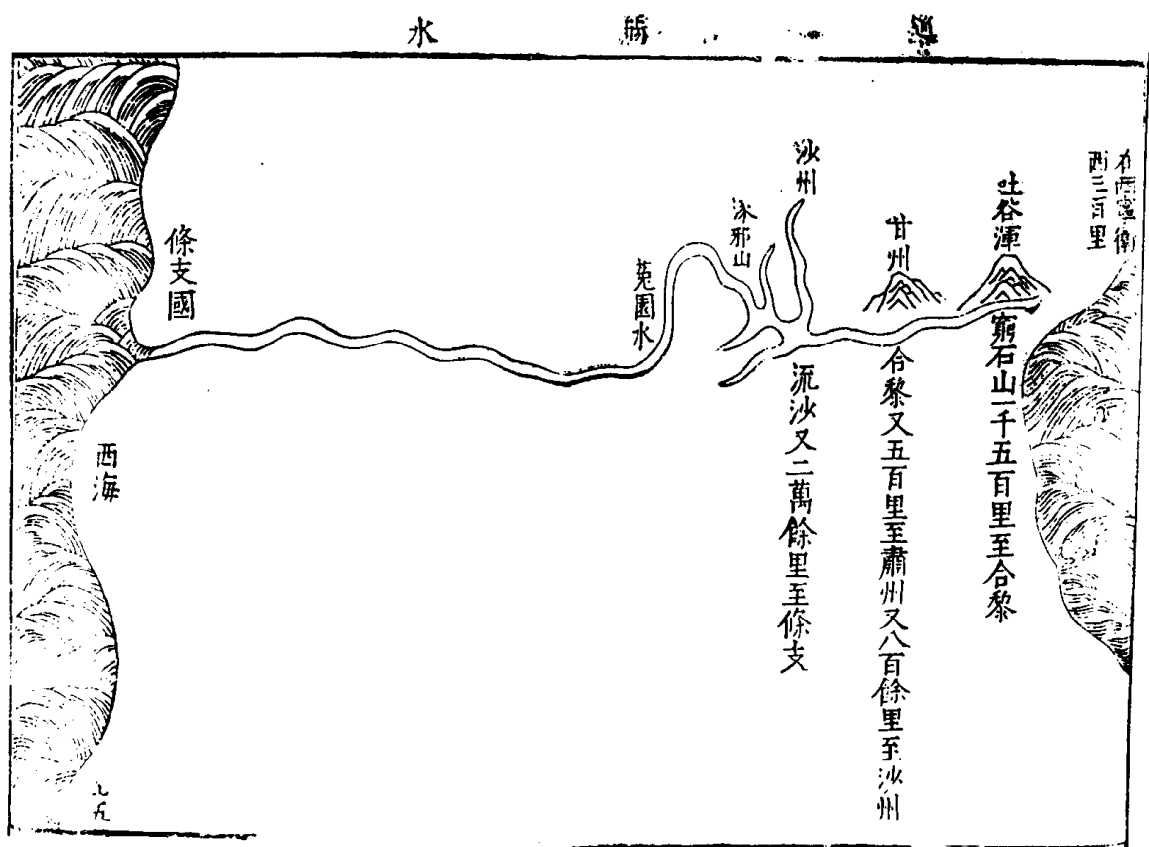 導 弱 水
在西寧衛
西三百里
吐谷渾
窮石山一千五百里至合黎
甘州
合黎又五百里至肅州又八百餘里至沙州
沙州
流沙又二萬餘里至條支
涿邪山
菟園水
條支國
西海
九五